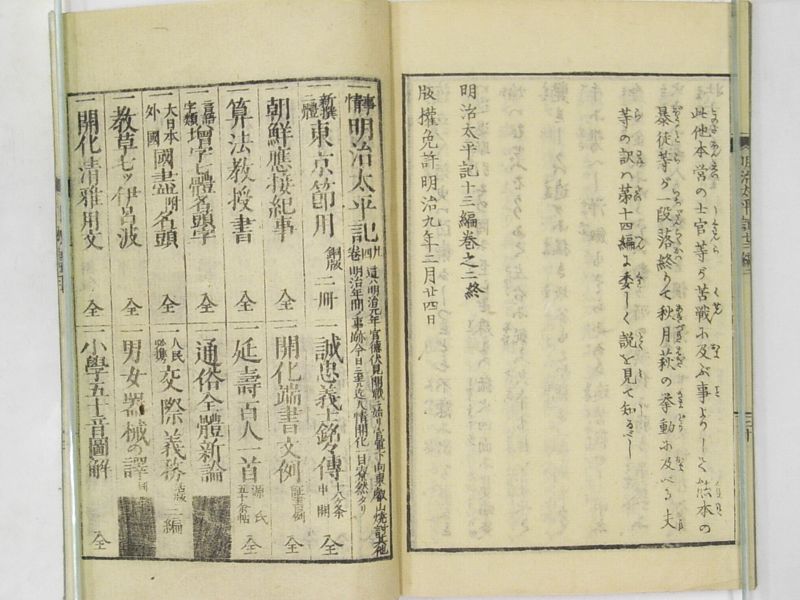 此他本営の士官等が苦戦に及ぶ事よりして熊本の
暴徒等が一段落終りて秋月萩の挙動に及べる丈
等の訳ハ第十四編に委しく説を見て知るべし
明治太平記十三編巻之二終
版權免許明治九年二月廿四日
事情明治太平記 廿四卷
新撰三體東京節用 銅版 二冊
一朝鮮應接紀事 全
一算法教授書 全
一言語字類増字七體名頭字 全
一大日本外國國盡名頭 全
一教草七ッ伊呂波 全
一開化清雅用文 全
一誠忠義士銘々傳
一開化端書文例 全
一延壽百人一首 源氏五十余帖 全
一通俗全體新論 全
一人民必携交際義務 二編
一男女器械の譯 全
一小學五十音圖解 全